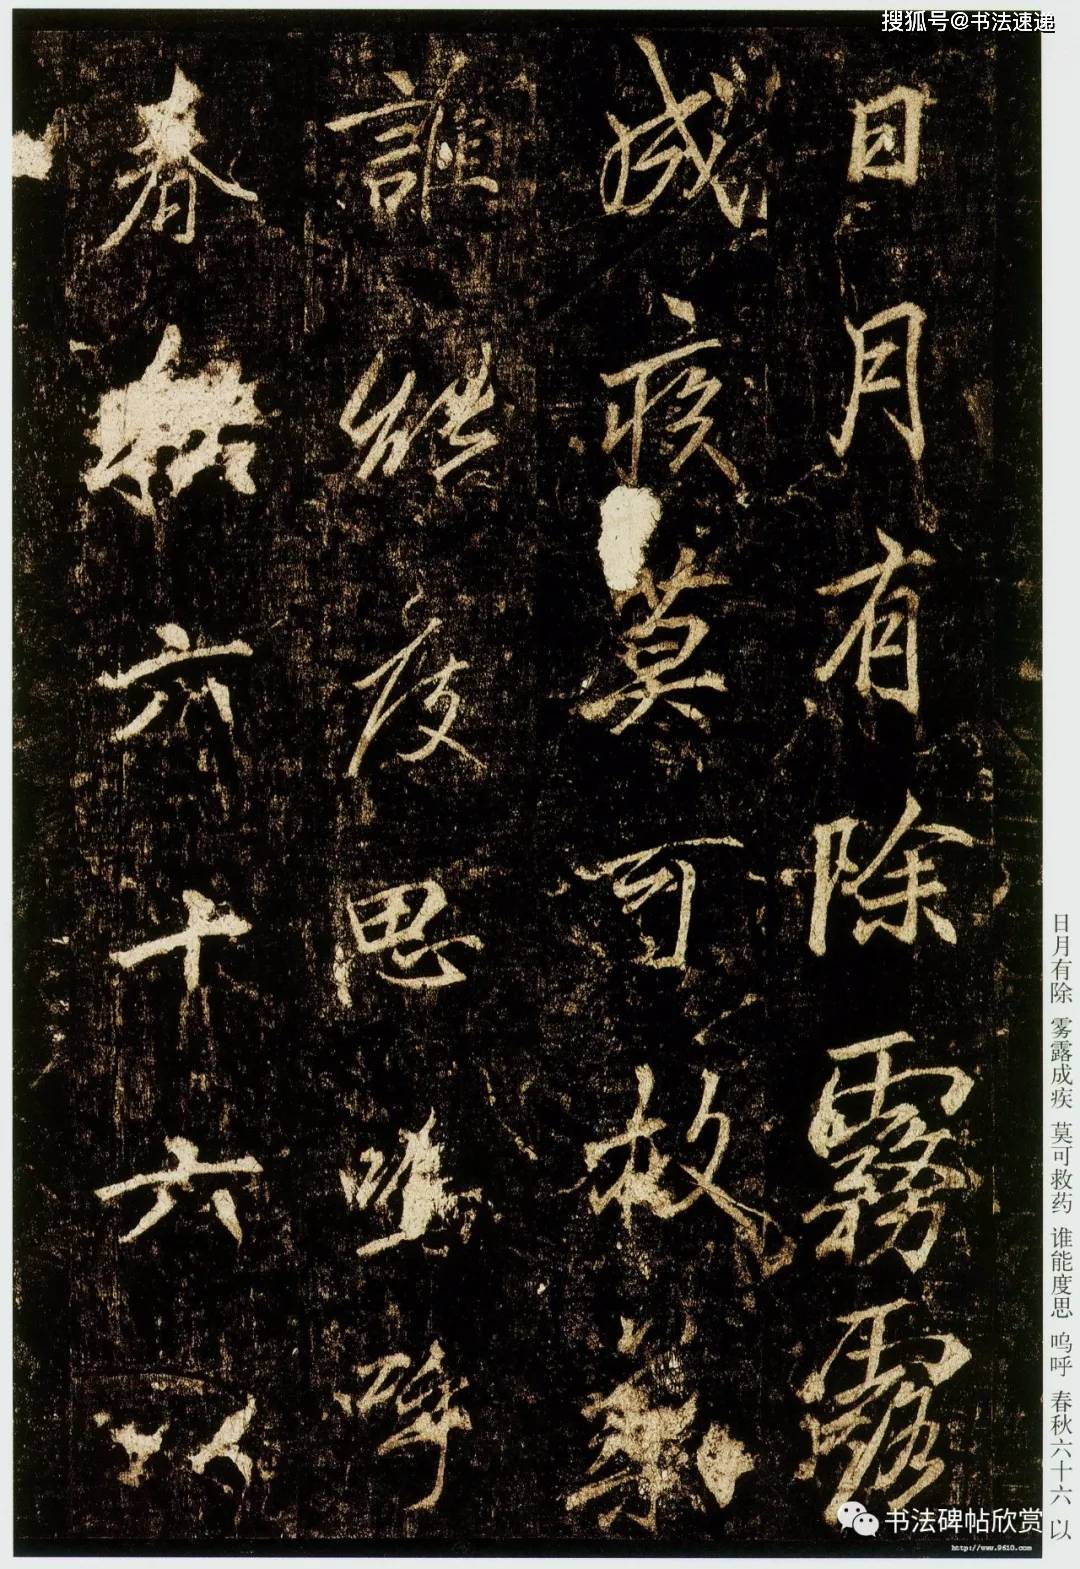 搜狐号@书法速递
日月有除霧露
成疾莫可救藥
誰能度思嗚呼
春秋六十六以
日月有除 雾露成疾 莫可救药 谁能度思 呜呼 春秋六十六 以
书法碑帖欣赏
http://www.9610.com